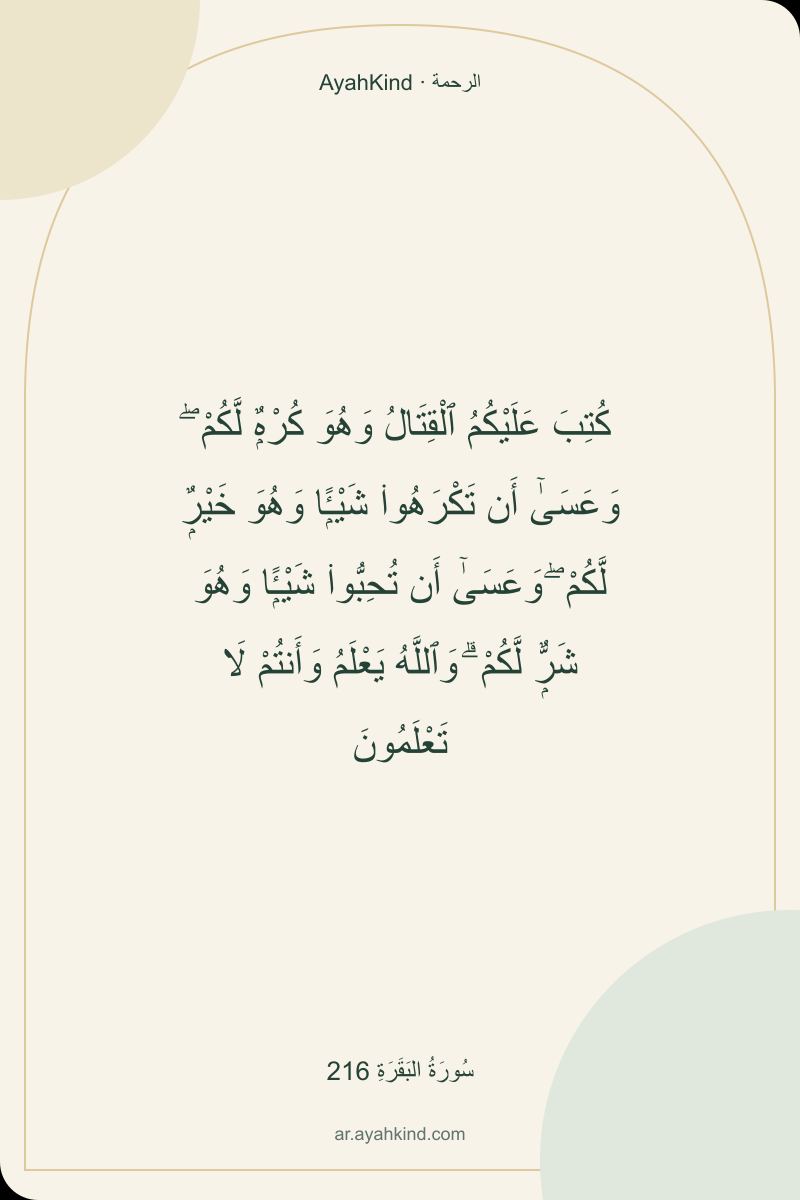 AyahKind · الرحمة
كُتِبَ عَلَيْكُمُ ٱلْقِتَالُ وَهُوَ كُرْهٌۭ لَّكُمْ ۖ
وَعَسَىٰٓ أَن تَكْرَهُوا۟ شَيْـًۭٔا وَهُوَ خَيْرٌۭ
لَّكُمْ ۖ وَعَسَىٰٓ أَن تُحِبُّوا۟ شَيْـًۭٔا وَهُوَ
شَرٌّۭ لَّكُمْ ۗ وَٱللَّهُ يَعْلَمُ وَأَنتُمْ لَا
تَعْلَمُونَ
سُورَةُ البَقَرَةِ 216
ar.ayahkind.com